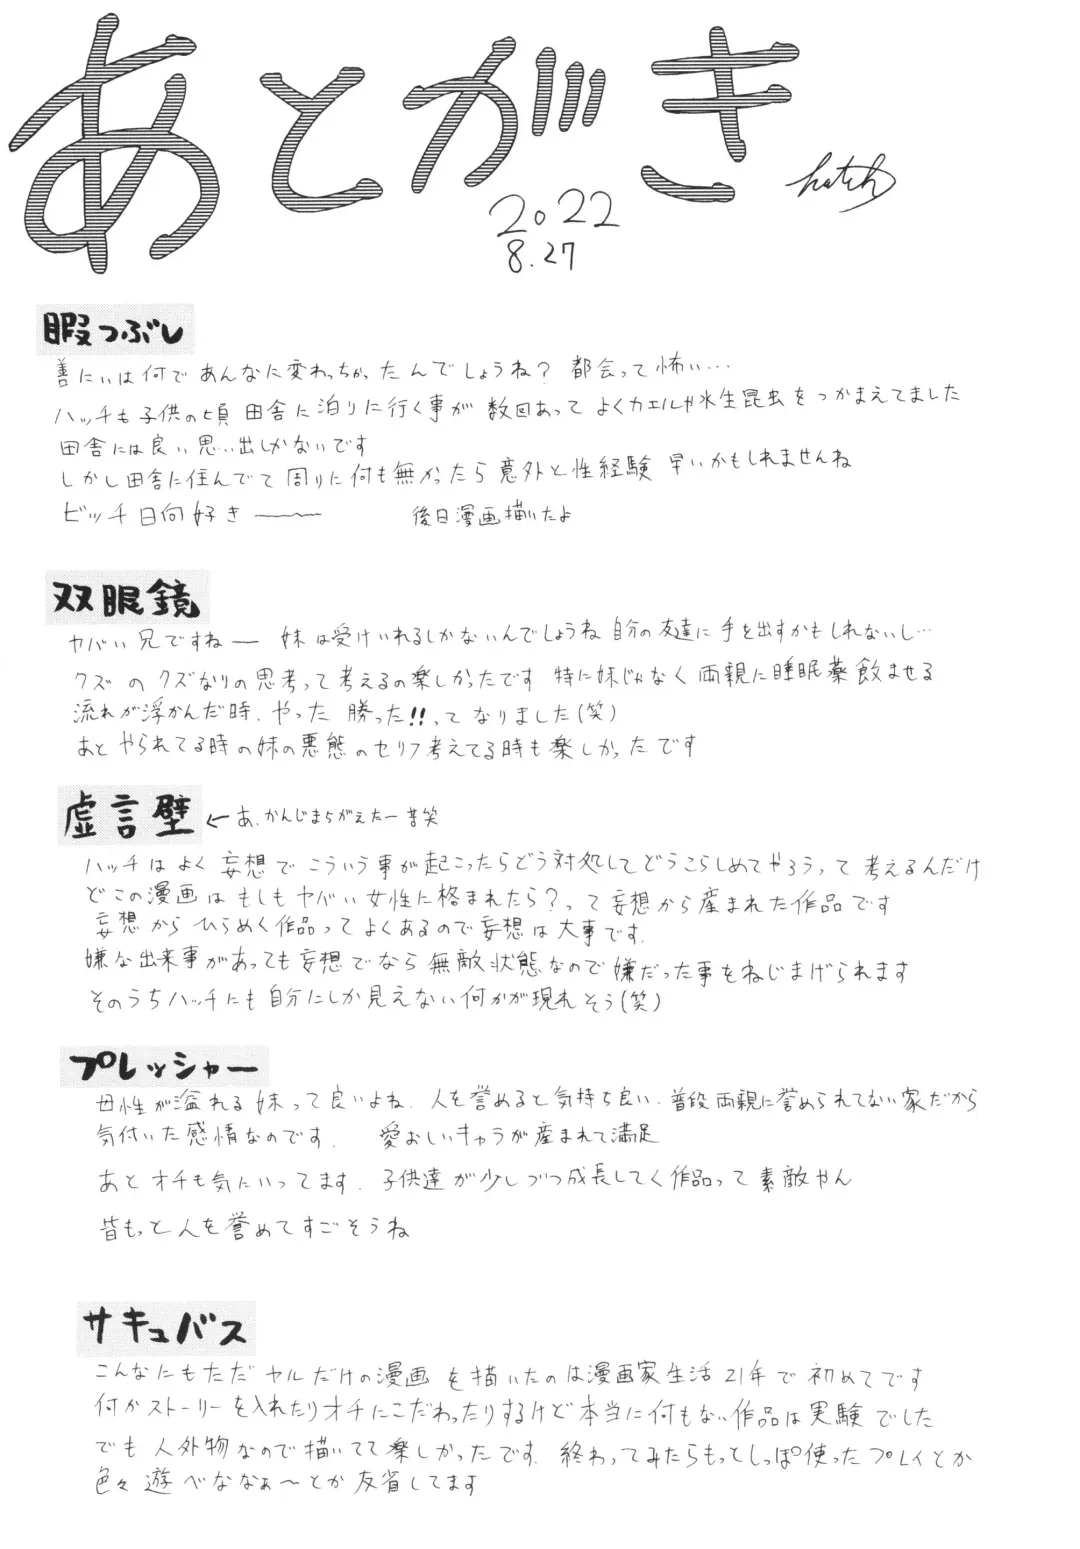 あとがき
hatch
2022
8.27
暇つぶし
善にぃは何であんなに変わっちゃったんでしょうね？ 都会って怖い…
ハッチも子供の頃 田舎に泊りに行く事が 数回あって よくカエルや水生昆虫をつかまえてました
田舎には良い思い出しかないです
しかし田舎に住んでて 周りに何も無かったら 意外と性経験 早いかもしれませんね
ビッチ日向好き――― 後日漫画描いたよ
双眼鏡
ヤバい兄ですね― 妹は受けいれるしかないんでしょうね 自分の友達に 手を出すかもしれないし…
クズの クズなりの思考って考えるの楽しかったです 特に妹じゃなく 両親に睡眠薬飲ませる
流れが浮かんだ時、やった 勝った!!って なりました(笑)
あと やられてる時の妹の悪態のセリフ考えてる時も楽しかったです
虚言壁 ← あ、かんじまちがえたー苦笑
ハッチは よく 妄想で こういう事が起こったらどう対処して どうこらしめてやろうって 考えるんだけ
どこの漫画は もしも ヤバい女性に格まれたら？って 妄想から産まれた作品です
妄想から ひらめく作品って よくあるので妄想は大事です.
嫌な出来事があっても妄想でなら 無敵状態なので嫌だった事をねじまげられます
そのうちハッチにも自分にしか見えない何かが現れそう(笑)
プレッシャー
母性が溢れる 妹って良いよね. 人を誉めると気持ち良い. 普段両親に誉められてない家だから
気付いた感情なのです. 愛おしいキャラが産まれて満足
あと オチも気にいってます. 子供達が少しづつ成長してく作品って 素敵やん
皆もっと人を誉めてすごそうね
サキュバス
こんなにもただ ヤルだけの漫画 を描いたのは漫画家生活 21年で 初めてです
何かストーリーを入れたりオチにこだわったりするけど 本当に何もない作品は 実験でした
でも 人外物なので描いてて楽しかったです. 終わってみたらもっとしっぽ使った プレイとか
色々 遊べななぁ～とか 反省してます